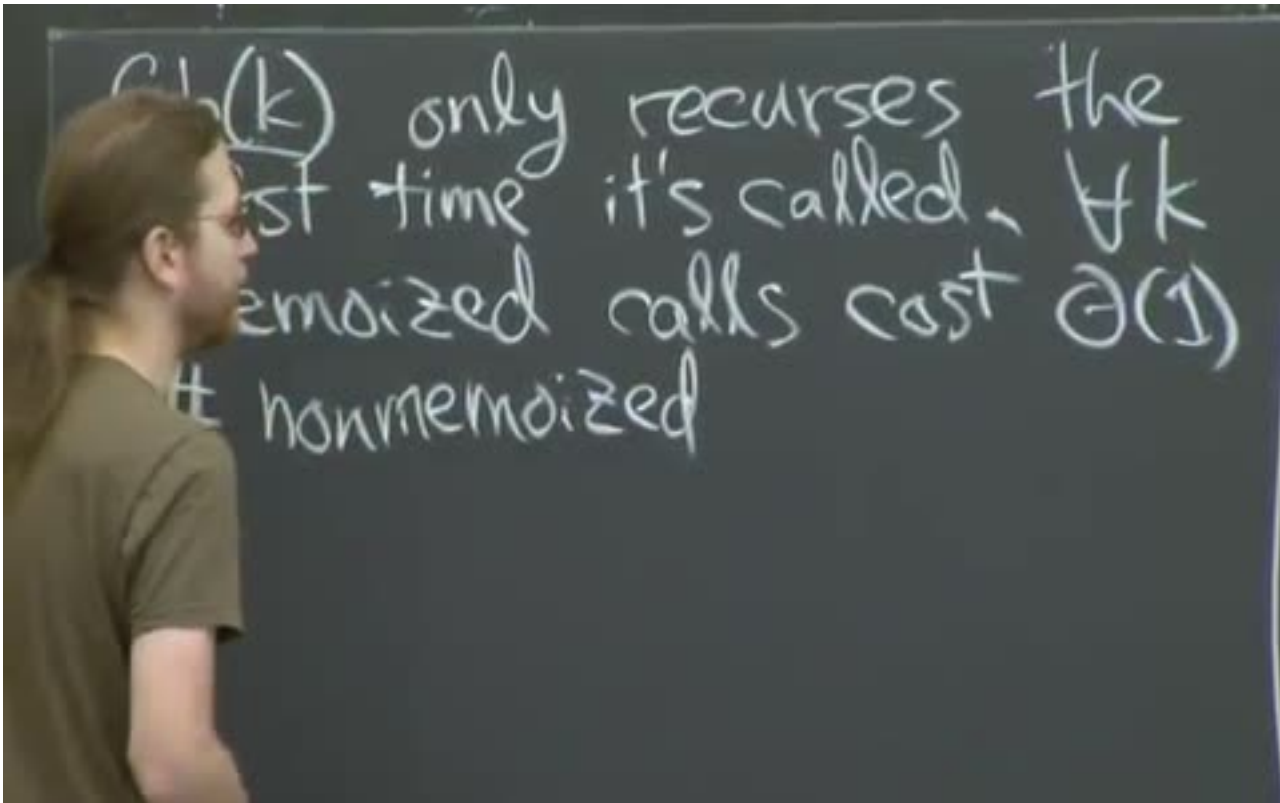 (k) only recurses the
time it's called. ∀k
calls cost Θ(1)
# nonmemoized